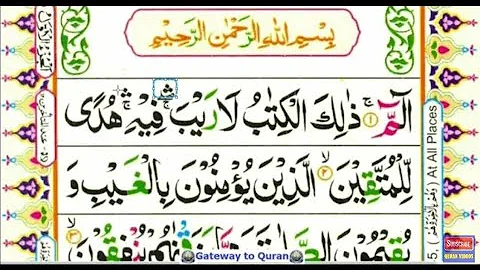 بِسْمِ اللهِ الرَّحْمٰنِ الرَّحِيْمِ
الٓمّٓ ۚ ۝۱ ذٰلِكَ الْكِتٰبُ لَا رَيْبَ ۛ فِيْهِ ۛ هُدًى
لِّلْمُتَّقِيْنَ ۙ ۝۲ الَّذِيْنَ يُؤْمِنُوْنَ بِالْغَيْبِ وَ
يُقِيْمُوْنَ الصَّلٰوةَ وَمِمَّا رَزَقْنٰهُمْ يُنْفِقُوْنَ ۙ ۝۳
At All Places
Gateway to Quran
SUBSCRIBE
QURAN VIDEOS